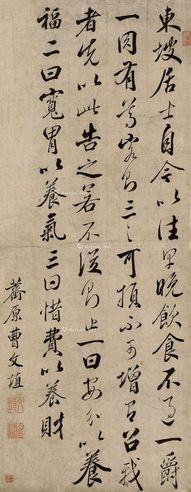 東坡居士自今以往早晚飲食不過一爵
一肉有尊客則三之可損不可增有召我
者先以此告之若不從則止一曰安分以養
福二曰寬胃以養氣三曰惜費以養財
薌原曹文埴